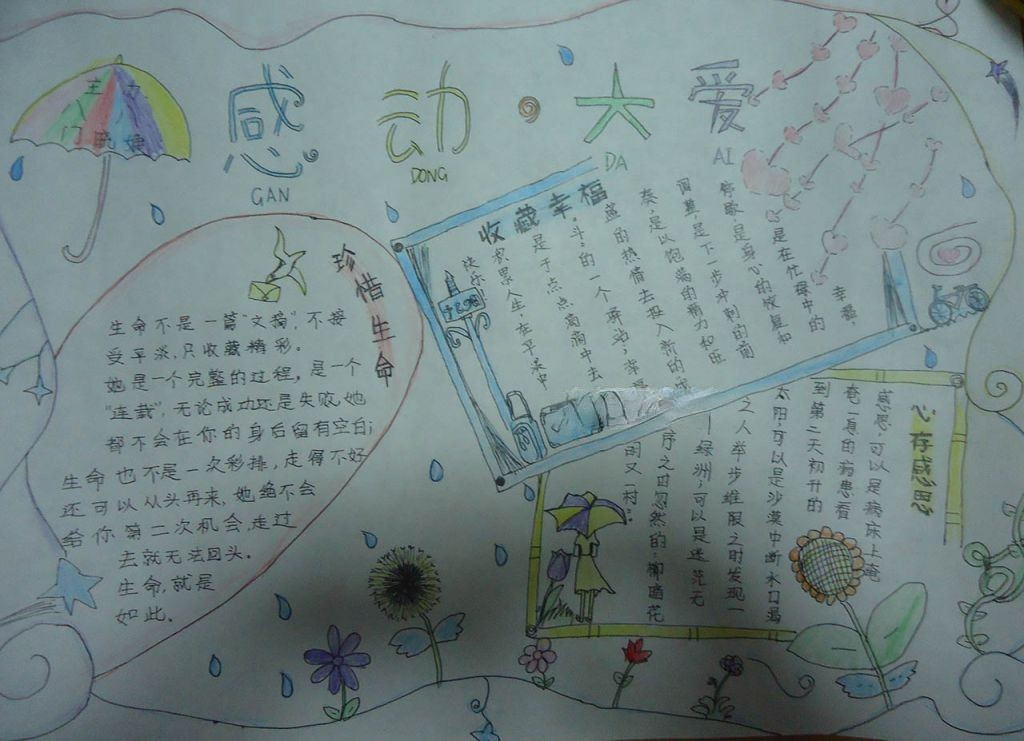 感 动 大 爱
GAN
DONG
DA
AI
珍惜生命
生命不是一篇“文稿”,不接
受平淡,只收藏精彩。
她是一个完整的过程,是一个
“连载”,无论成功还是失败,她
都不会在你的身后留有空白;
生命也不是一次彩排,走得不好
还可以从头再来,她绝不会
给你第二次机会,走过
去就无法回头。
生命,就是
如此。
收藏幸福
幸福,
是在忙碌中的
停歇,是身心的恢复和
调整,是下一步冲刺的前
奏,是以饱满的精力和旺
盛的热情去投入新的
斗”的一个驿站;幸福
是于点点滴滴中去
积累人生,在平淡中
快乐
心存感恩
感恩,可以是病床上奄
奄一息的病患看
到第二天初升的
太阳,可以是沙漠中断水口渴
之人举步维艰之时发现一
——绿洲,可以是迷茫无
序之日忽然的:柳暗花
明又一村。